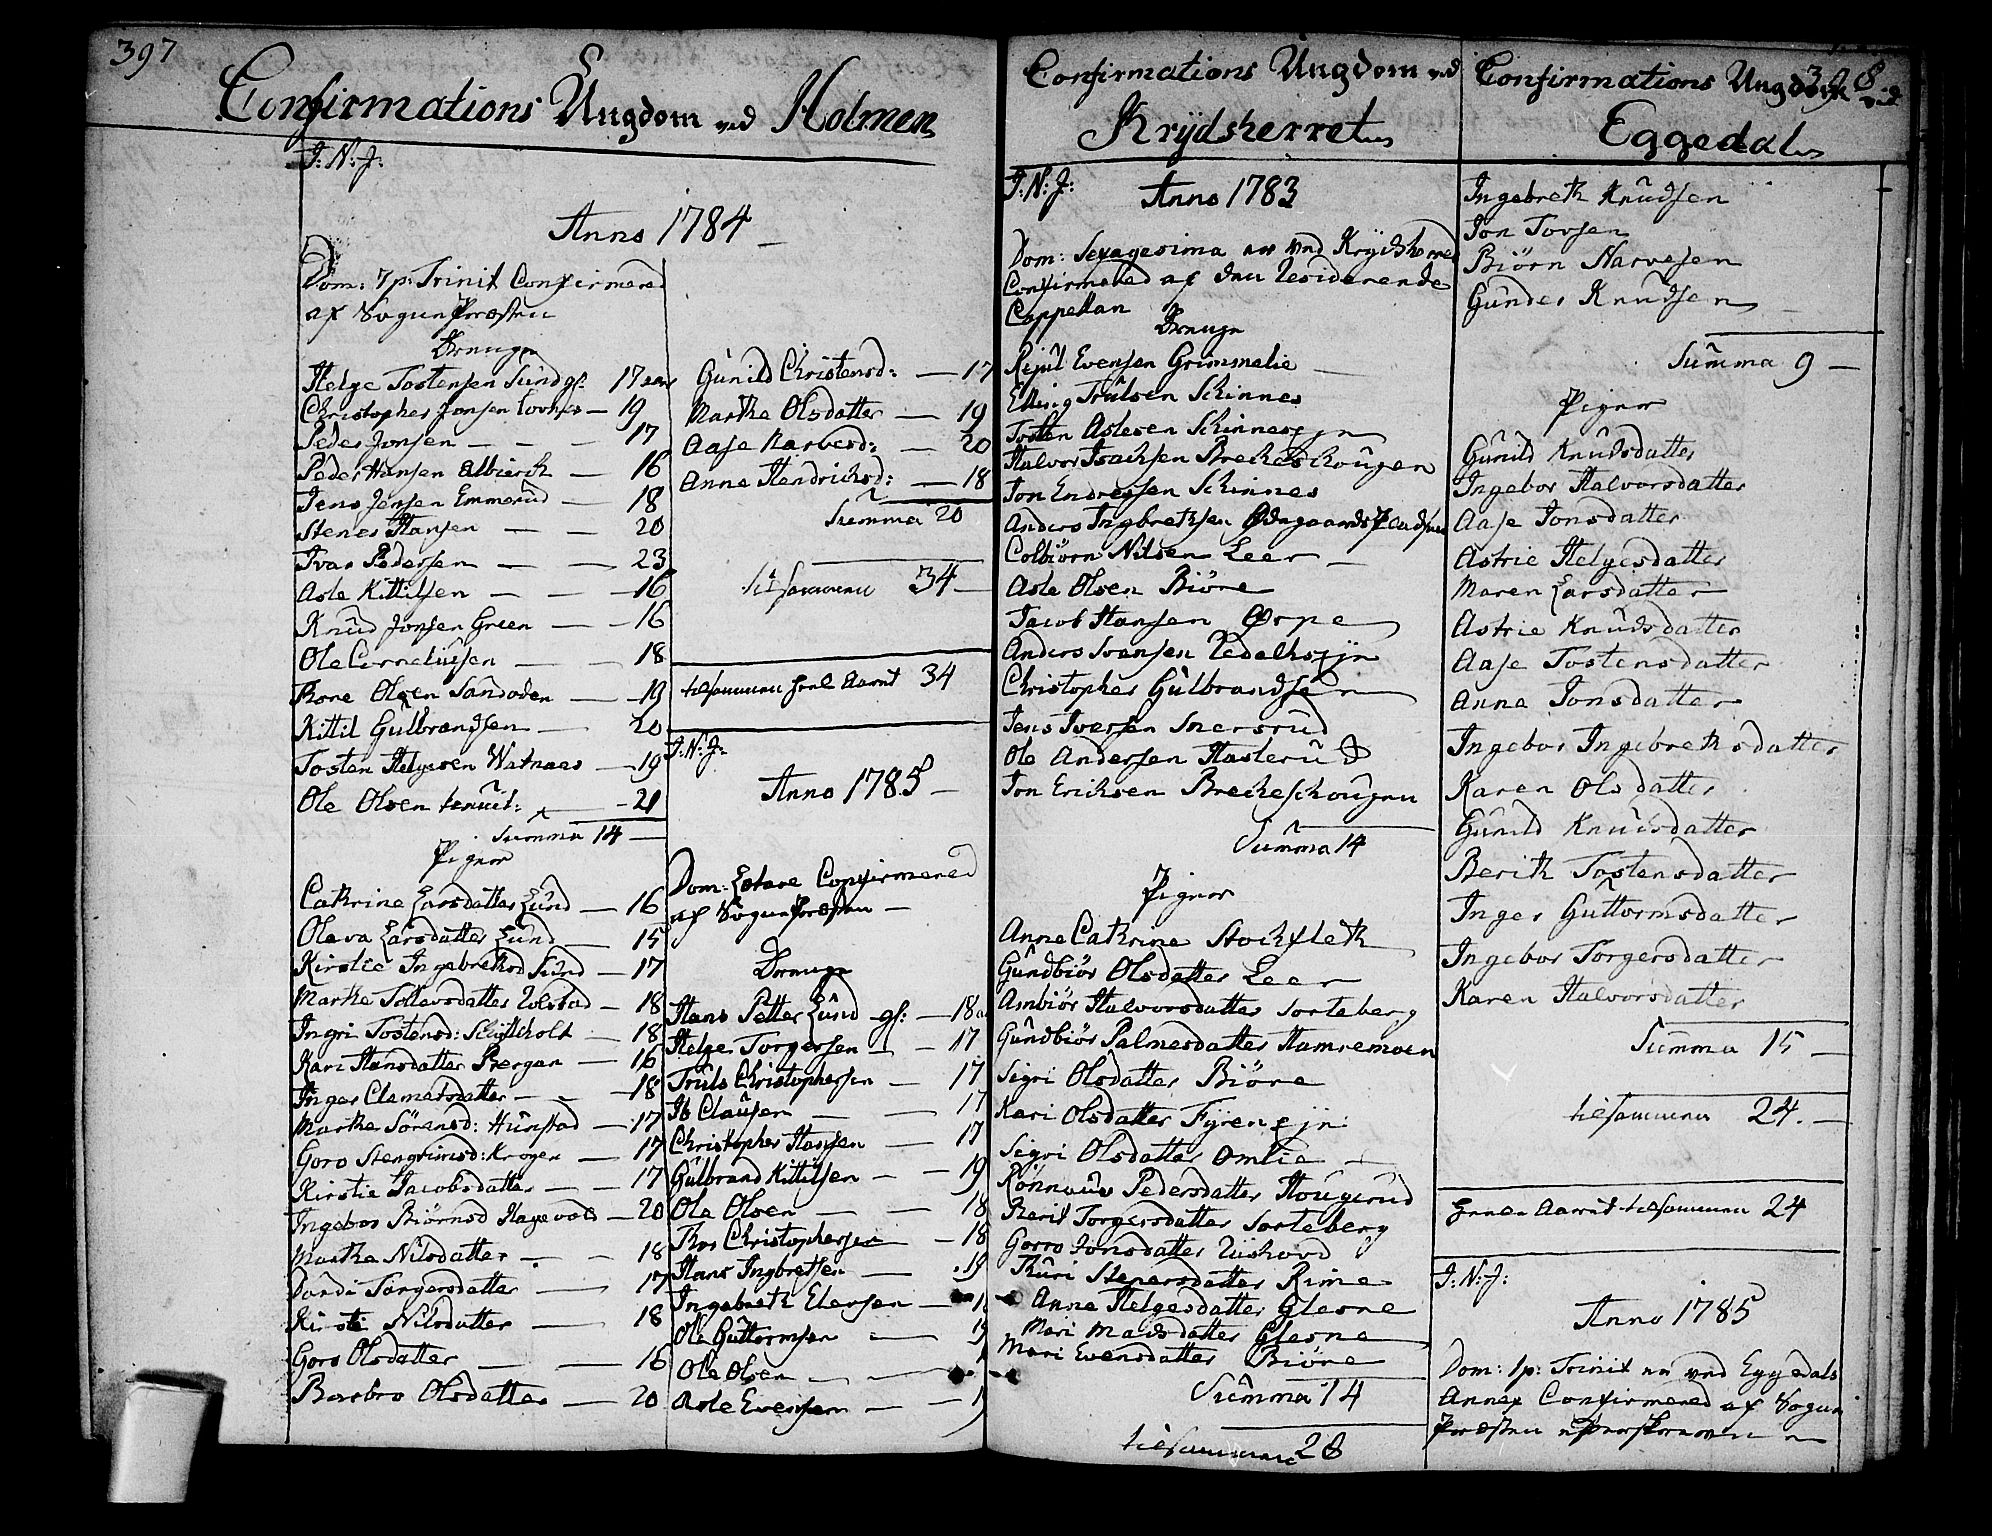 397
Confirmations Ungdom ved Holmen
I: N: J:
Anno 1784
Dom: 7 p: Trinit Confirmered
af Sogne Præsten
Drenge
Helge Tostensen Sund gl: 17 aar
Christopher Jonsen — 19
Peder Jonsen — — — 17
Peder Hansen Albierck — 16
Jens Jensen Emmerud — 18
Stener Hansen — — 20
Ivar Pedersen — — 23
Asle Kittilsen — — — 16
Knud Jonsen Green — — 16
Ole Corneliusen — — 18
Thore Olsen Sandaden — 19
Kittil Gulbrandsen — 20
Tosten Helgesen Watnaas — 19
Ole Olsen — 21
Summa 14 —
Piger
Cathrine Larsdatter Lund — 16
Oleva Larsdatter Lund — 15
Kirstie Ingebrethsd Sund — 17
Marthe Tollevsdatter Wolstad — 18
Ingri Tostensd: — 18
Kari Hansdatter Bergan — 16
Inger Clemetsdatter — — 18
Marthe Sörensd: Hunstad — 17
Goro Stengrimsd: Krogen — 17
Kirstie Jacobsdatter — — 17
Ingebor Biörnsd Hagevold — 20
Marthe Nilsdatter — — 18
Dordi Torgersdatter — 17
Kirsti Nilsdatter — 18
Goro Olsdatter — — 16
Barbro Olsdatter — 20
Gunild Christensd: — 17
Marthe Olsdatter — 19
Aase Narvesd: — 20
Anne Hendrichsd: — 18
Summa 20
tilsammen 34 —
tilsammen hele Aaret 34
I: N: J:
Anno 1785 —
Dom: Lætare Confirmered
af Sogne Præsten —
Drenge
Hans Petter Lund gl: — 18 a
Helge Torgersen — — 17
Truls Christophersen — 17
Ib Clausen — — 17
Christopher Hansen — 17
Gulbrand Kittilsen — — 19
Ole Olsen — — 18
Thor Christophersen — 18
Hans Ingbretsen — 19
Ingebreth Elensen — 1
Ole Guttormsen — 19
Ole Olsen — —
Asle Evensen — — 1
Confirmations Ungdom ved
Krydsherret
I: N: J: Anno 1783
Dom: Sexagesima er ved Krydsherre
Confirmered af den Residerende
Cappellan
Drenge
Kijul Evensen Grimmelie —
Elling Trulsen Schinnes
Tosten Aslesen Schinnes
Halvor Isachsen Brecheschougen
Jon Endresen Schinnes
Anders Ingbrethsen Ødegaards
Colbiörn Nilsen Leer —
Asle Olsen Biöre
Jacob Hansen Ørpe
Anders Svensen
Christopher Gulbrandsen
Jens Iversen Snersrud
Ole Andersen Hasterud
Jon Erichsen Brecheschougen
Summa 14
Piger
Anne Cathrine Stochfleth
Gundbiör Olsdatter Leer
Ambiör Halvorsdatter Sorteberg
Gundbiör Palmesdatter Hamremoen
Sigri Olsdatter Biöre
Kari Olsdatter
Sigri Olsdatter Omlie —
Rönnaug Pedersdatter Hougerud
Berit Torgersdatter Sorteberg
Gorro Jonsdatter
Thuri Stepersdatter Rime
Anne Helgesdatter Glesne
Mari Madsdatter Glesne
Mari Evensdatter Biöre
Summa 14
tilsammen 28
398
Confirmations Ungdom ved
Eggedal
Ingebreth Knudsen
Jon Torsen
Biörn Narvesen
Gunder Knudsen
Summa 9 —
Piger
Gunild Knudsdatter
Ingebor Halvorsdatter
Aase Jonsdatter
Astrie Helgesdatter
Maren Larsdatter
Astrie Knudsdatter
Aase Tostensdatter
Anne Jonsdatter
Ingebor Ingebrethsdatter
Karen Olsdatter
Gunild Knudsdatter
Berith Tostensdatter
Inger Guttormsdatter
Ingebor Torgersdatter
Karen Halvorsdatter
Summa 15 —
tilsammen 24. —
Aaret tilsammen 24
I: N: J:
Anno 1785
Dom: 1 p: Trinit er ved Eggedals
Annex Confirmered af Sogne
Præsten